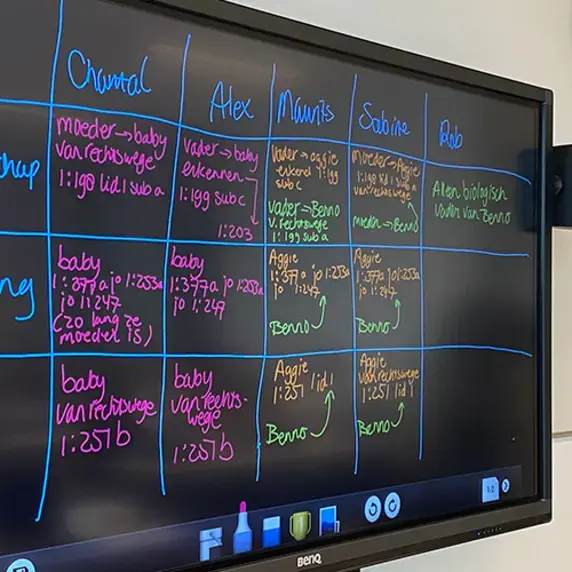 Chantal
Alex
Maurits
Sabine
Rob
hap
moeder → baby
van rechtswege
1:198 lid.1 sub a
vader → baby
erkennen
1:199 sub c
1:203
Vader → Aggie
erkend 1:199
sub c
vader → Benno
v. rechtswege
1:199 sub a
Moeder → Aggie
1:198 lid 1 sub a
van rechtswege
moeder → Benno
Alleen biologisch
vader van Benno
ng
baby
1:377a jo 1:253a
jo 1:247
(zo lang ze
moeder is)
baby
1:377a jo 1:253a
jo 1:247
Aggie
1:377a jo 1:253a
jo 1:247
Benno
Aggie
1:377a jo 1:253a
jo 1:247
Benno
baby
van rechtswege
1:257b
baby
van rechts-
wege
1:257b
Aggie
1:257 lid 1
Benno
Aggie
van rechtswege
1:251 lid 1
Benno
BenQ